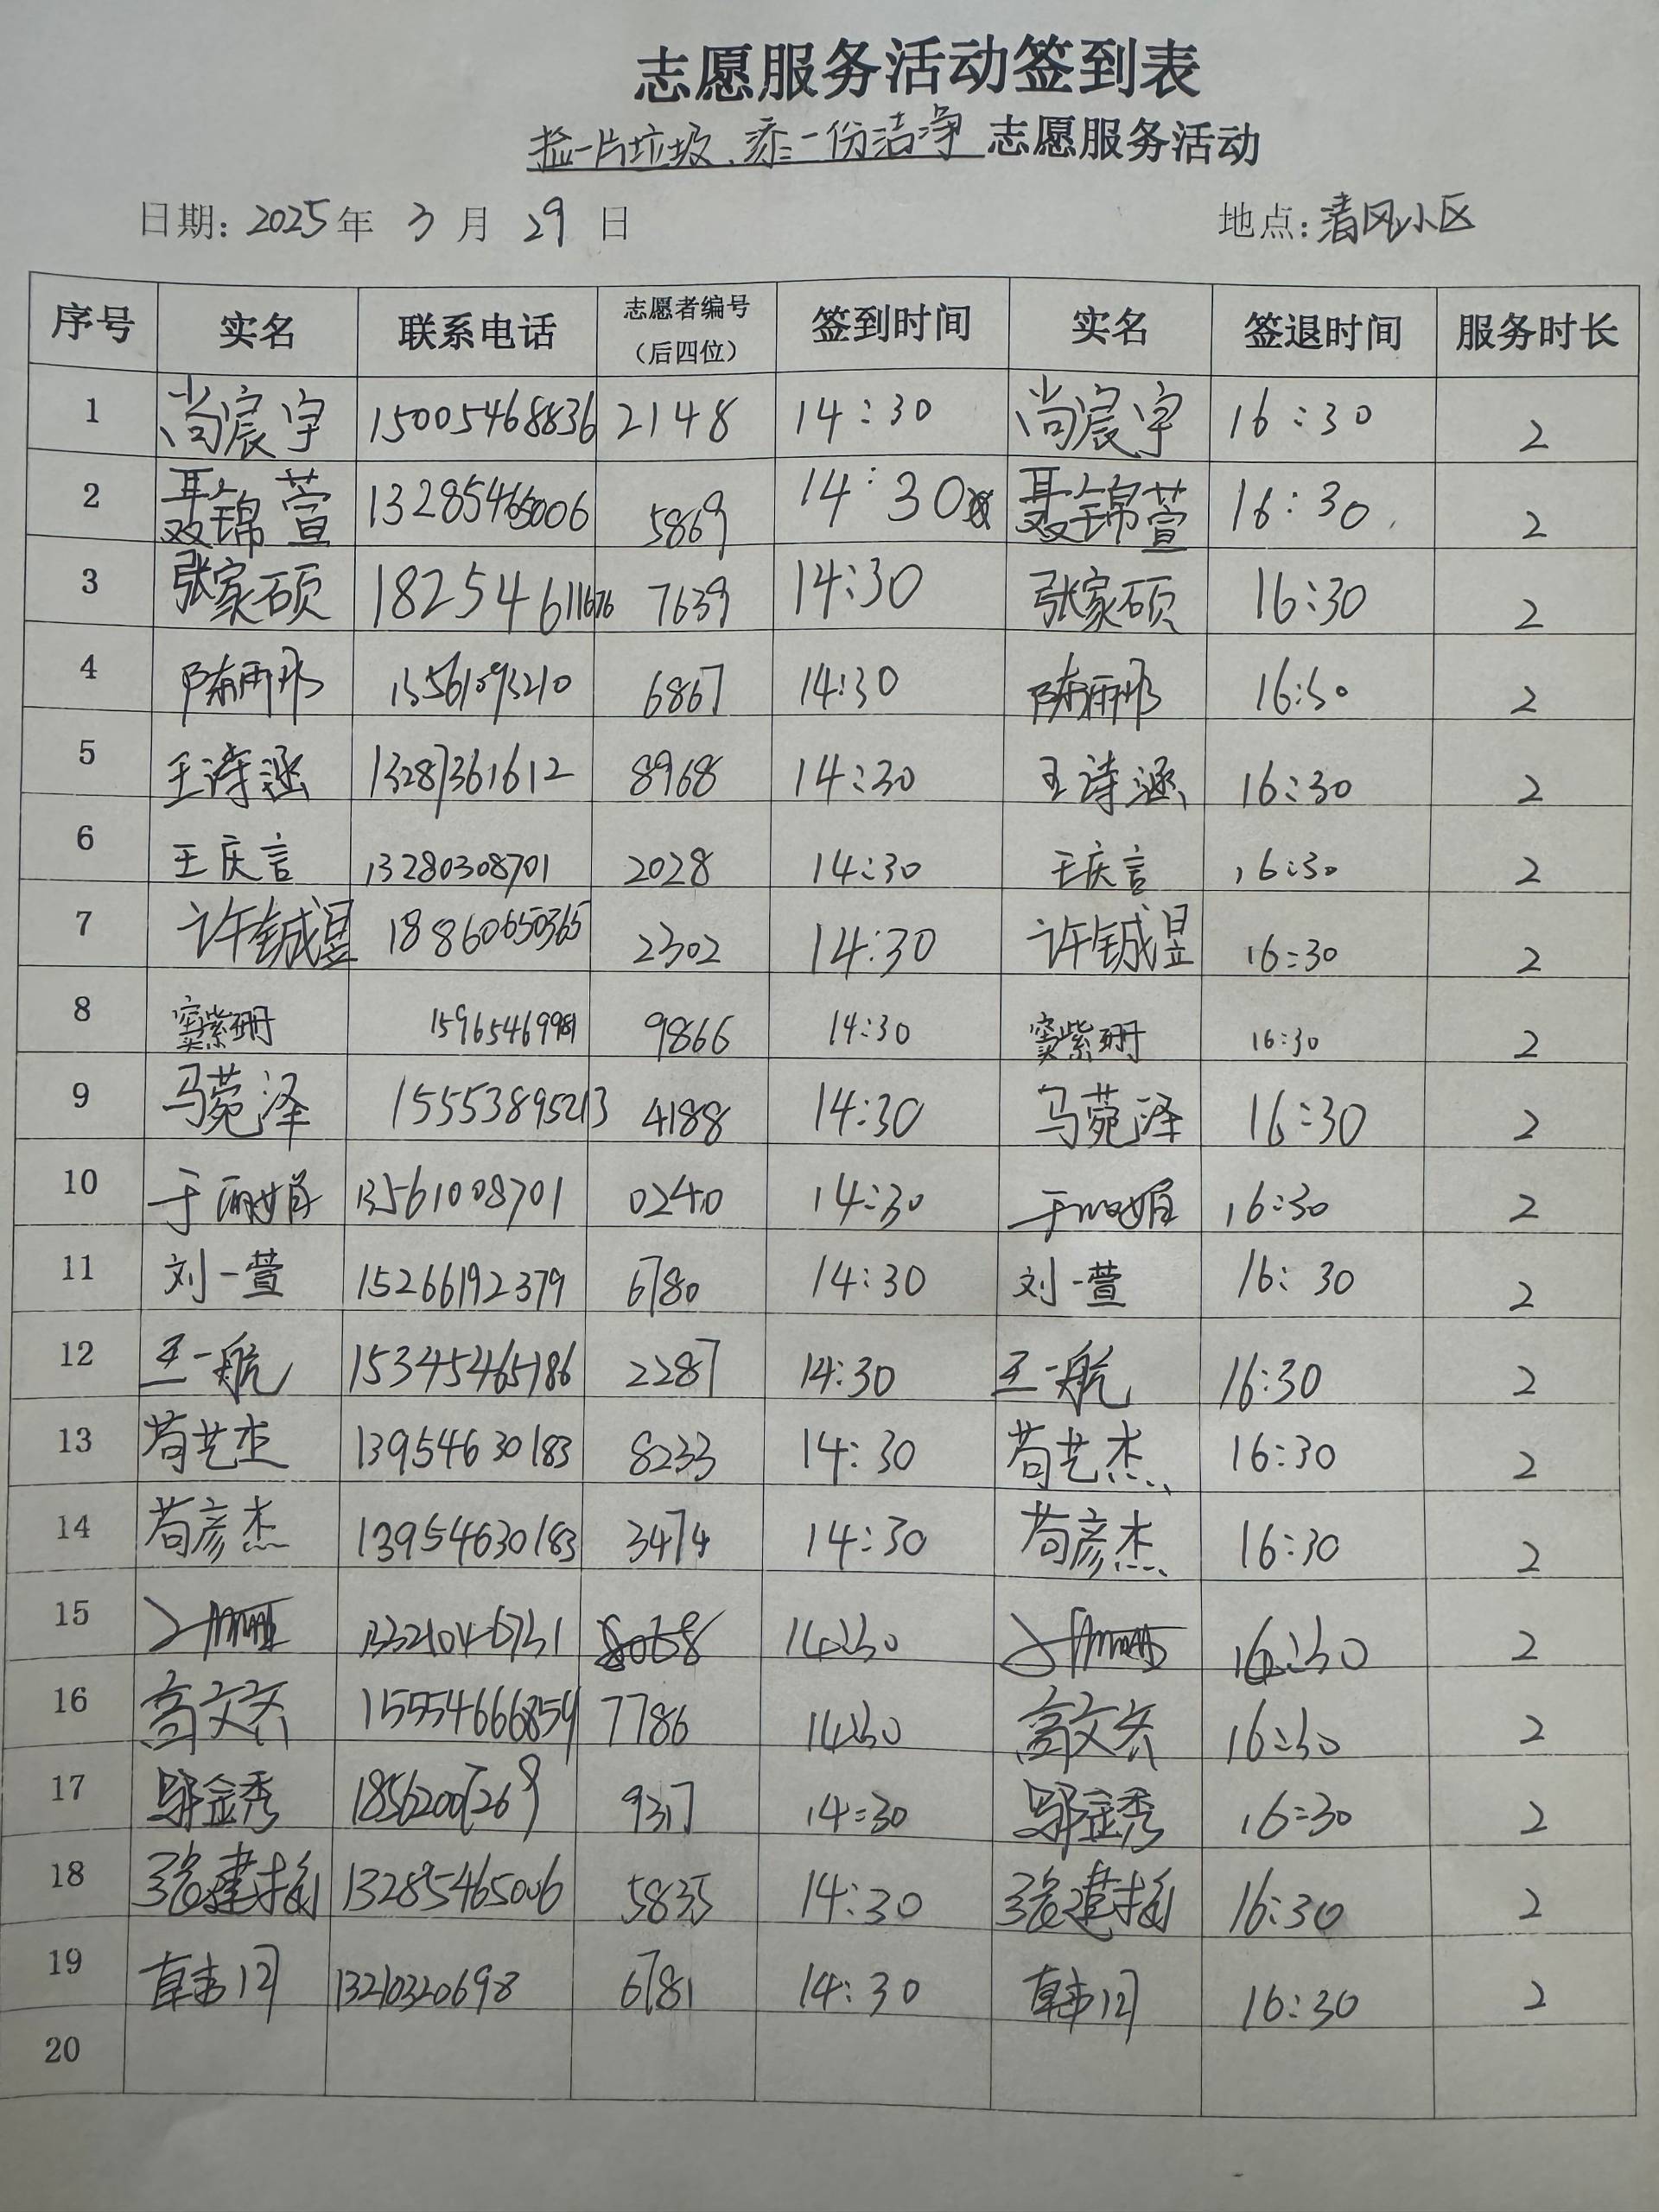 志愿服务活动签到表
捡一片垃圾、添一份洁净 志愿服务活动
日期: 2025 年 3 月 29 日 地点: 清风小区
序号 实名 联系电话 志愿者编号（后四位） 签到时间 实名 签退时间 服务时长
1 尚宸宇 15005468836 2148 14:30 尚宸宇 16:30 2
2 聂锦萱 13285465006 5869 14:30 聂锦萱 16:30 2
3 张家硕 18254611676 7639 14:30 张家硕 16:30 2
4 陈雨彤 13561093210 6867 14:30 陈雨彤 16:30 2
5 王诗涵 13287361612 8968 14:30 王诗涵 16:30 2
6 王庆言 13280308701 2028 14:30 王庆言 16:30 2
7 许铖昱 18860650365 2302 14:30 许铖昱 16:30 2
8 窦紫珊 15965469981 9866 14:30 窦紫珊 16:30 2
9 马菀泽 15553895213 4188 14:30 马菀泽 16:30 2
10 于丽娟 13561008701 0240 14:30 于丽娟 16:30 2
11 刘一萱 15266192379 6780 14:30 刘一萱 16:30 2
12 王一航 15345465186 2287 14:30 王一航 16:30 2
13 苟艺杰 13954630183 8233 14:30 苟艺杰 16:30 2
14 苟彦杰 13954630183 3474 14:30 苟彦杰 16:30 2
15 13321046731 8068 14:30 16:30 2
16 高文宏 15554666854 7786 14:30 高文宏 16:30 2
17 邬金秀 18562007269 9317 14:30 邬金秀 16:30 2
18 张建梅 13285465006 5835 14:30 张建梅 16:30 2
19 13210320698 6781 14:30 16:30 2
20